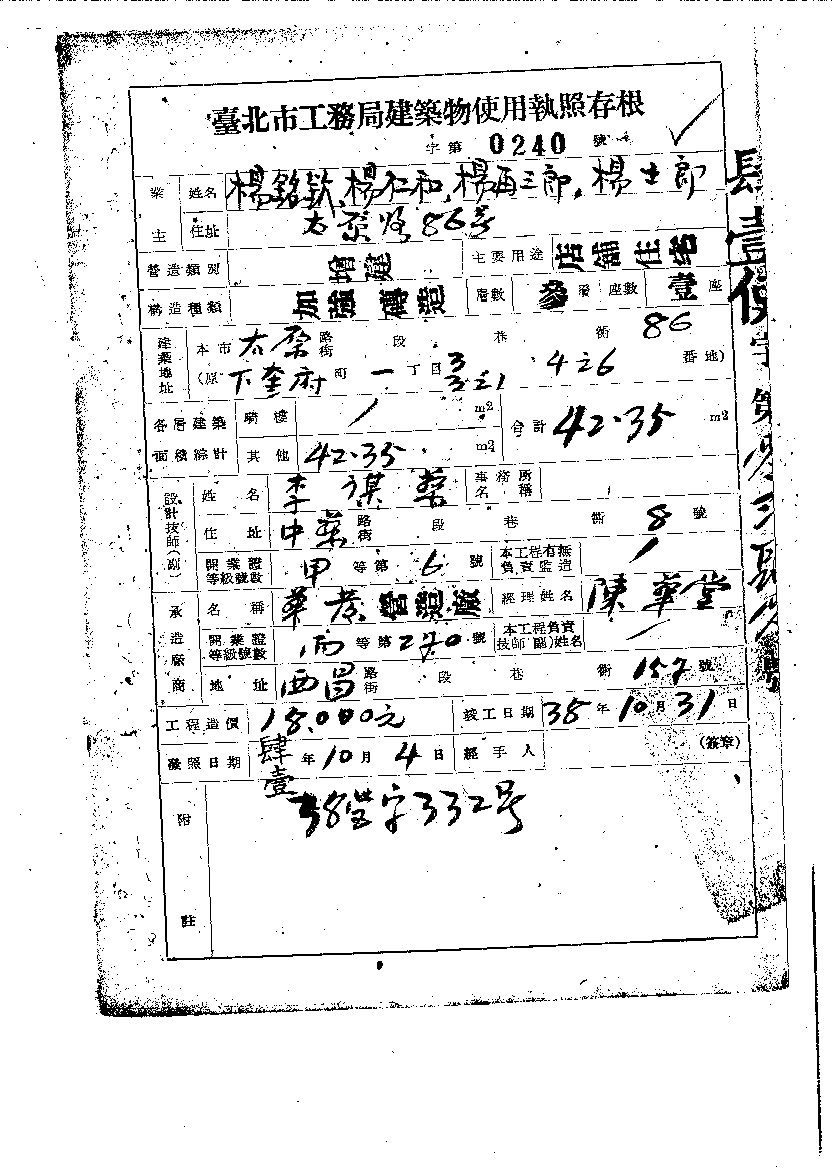 臺北市工務局建築物使用執照存根
字第 0240 號
業主 姓名 楊銘欽、楊仁和、楊酉三郎、楊士郎
住址 太原路86号
營造類別 增建 主要用途 店鋪住宅
構造種類 加強磚造 層數 參層 座數 壹座
建築地址 本市 太原 路街 段 巷 衖 86
(原 下奎府 町 一 丁目 426 番地)
各層建築面積綜計 騎樓 / m2 合計 42.35 m2
其他 42.35 m2
設計技師(副) 姓名 李謀 事務所名稱
住址 中華 路街 段 巷 衖 8 號
開業證等級號數 甲 等第 6 號 本工程有無負責監造 /
承造廠商 名稱 華 營造廠 經理姓名 陳華堂
開業證等級號數 丙 等第 270 號 本工程負責技師(區)姓名 /
地址 西昌 路街 段 巷 衖 157 號
工程造價 18,000元 竣工日期 38年10月31日
發照日期 肆壹年10月4日 經手人 (簽章)
附註 38營字332号
肆壹使字第